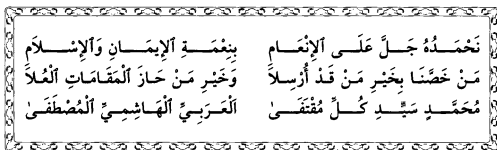 نَحْمَدُهُ جَلَّ عَلَى الْإِنْعَامِ بِنِعْمَةِ الْإِيمَانِ وَالْإِسْلَامِ
مَنْ خَصَّنَا بِخَيْرِ مَنْ قَدْ أُرْسِلَا وَخَيْرِ مَنْ حَازَ الْمَقَامَاتِ الْعُلَا
مُحَمَّدٍ سَيِّدِ كُلِّ مُقْتَفَى الْعَرَبِيِّ الْهَاشِمِيِّ الْمُصْطَفَى